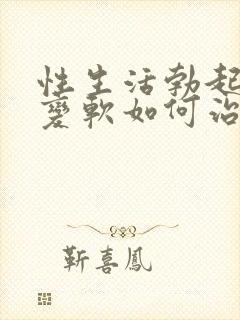 性生活勃起
变软如何治
靳喜鳳